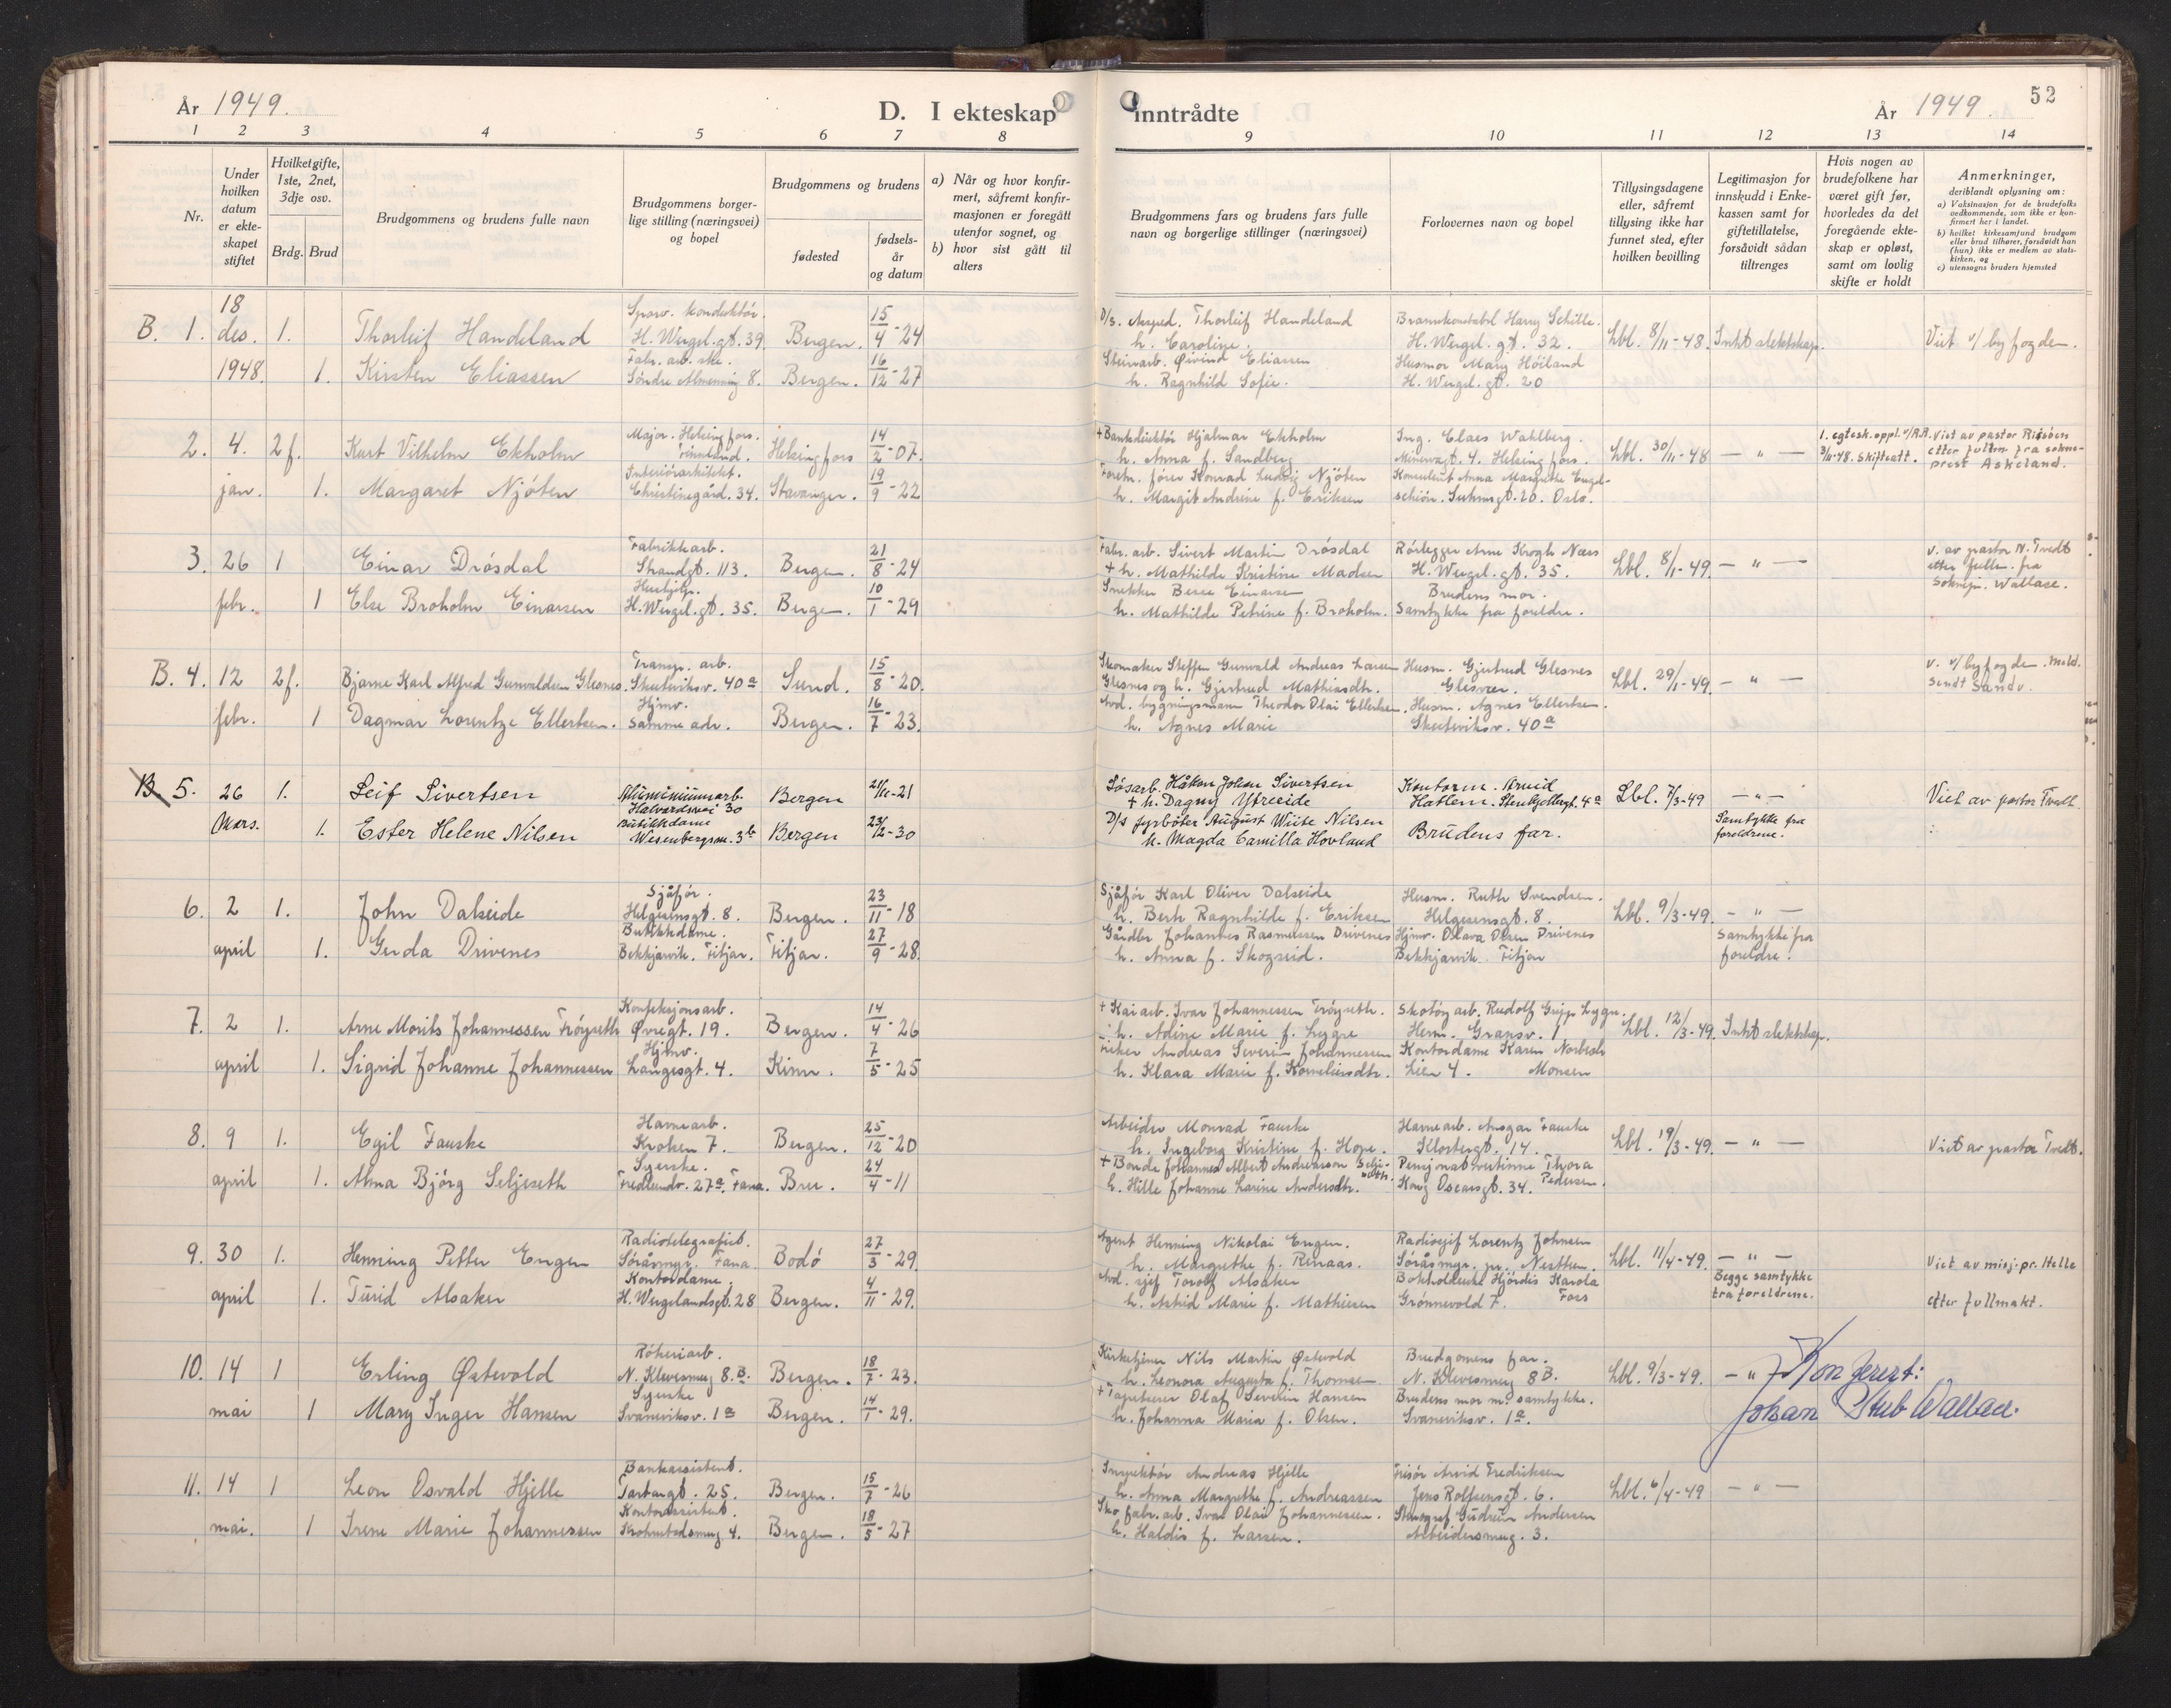 År 1949.
D. I ekteskap inntrådte
År 1949. 52
1 2 3 4 5 6 7 8 9 10 11 12 13 14
Nr.
Under hvilken datum er ekteskapet stiftet
Hvilket gifte, 1ste, 2net, 3dje osv.
Brdg. Brud
Brudgommens og brudens fulle navn
Brudgommens borgerlige stilling (næringsvei) og bopel
Brudgommens og brudens
fødested
fødselsår og datum
a) Når og hvor konfirmert, såfremt konfirmasjonen er foregått utenfor sognet, og
b) hvor sist gått til alters
Brudgommens fars og brudens fars fulle navn og borgerlige stillinger (næringsvei)
Forlovernes navn og bopel
Tillysingsdagene eller, såfremt tillysing ikke har funnet sted, efter hvilken bevilling
Legitimasjon for innskudd i Enkekassen samt for giftetillatelse, forsåvidt sådan tiltrenges
Hvis nogen av brudefolkene har været gift før, hvorledes da det foregående ekteskap er opløst, samt om lovlig skifte er holdt
Anmerkninger,
deriblandt oplysning om:
a) Vaksinasjon for de brudefolks vedkommende, som ikke er konfirmert her i landet.
b) hvilket kirkesamfund brudgom eller brud tilhører, forsåvidt han (hun) ikke er medlem av statskirken, og
c) utensogns bruders hjemsted
B. 1. 18 des. 1948. 1. Thorleif Handeland
Sporv. konduktør. H. Wergel. gt. 39. Bergen. 15/4-24
D/s. Thorleif Handeland
h. Caroline.
Brannkonstabel Harry Schille.
H. Wergel. gt. 32.
Lbl. 8/11-48. Intet slektskap. Viet v/ byfogden.
1. Kirsten Eliassen
Fabr. arb. ske. Søndre Almenning 8. Bergen. 16/12-27
Steinarb. Øivind Eliassen
h. Ragnhild Sofie.
Husmor Mary Höiland
H. Wergel. gt. 20
2. 4. jan. 2f. Kurt Vilhelm Ekholm
Major. Helsingfors. Finnland. Helsingfors 14/2-07.
+ Bankdirektör Hjalmar Ekholm
h. Anna f. Sandberg
Ing. Claes Wahlberg.
Minervagt. 4. Helsingfors.
Lbl. 30/11-48 - " -
1. egtesk. oppl. v/ R.R.
Viet av pastor Risøen etter fullm. fra sokneprest Askeland.
1. Margaret Njøten
Interiörarkitekt. Christinegård. 34. Stavanger. 19/9-22
Forretn. fører Konrad Ludvig Njøten
h. Margit Andrine f. Eriksen
Konsulent Anna Margrethe Engelschiön. Suhmsgt. 20. Oslo.
3. 26 febr. 1 Einar Drösdal
Fabrikkarb. Strandgt. 113. Bergen. 21/8-24
Fabr. arb. Sivert Martin Drösdal
+ h. Mathilde Kristine Madsen
Rørlegger Arne Krogh Næss
H. Wergel. gt. 35.
Lbl. 8/11-49. - " -
v. av pastor N. Tvedt etter fullm. fra soknepr. Wallace.
1 Else Broholm Einarsen
Hushjelp. H. Wergel. gt. 35. Bergen. 10/1-29
Snekker Einarsen
h. Mathilde Petrine f. Broholm.
Brudens mor.
Samtykke fra foreldre.
B. 4. 12 febr. 2f. Bjarne Karl Alfred Gunvaldsen Glesnes.
Transp. arb. Skuteviksv. 40a Sund. 15/8-20.
Skomaker Steffen Gunvald Andreas Larsen
Glesnes og h. Gjertrud Mathiasdtr.
Husm. Gjertrud Glesnes
Glesvær.
Lbl. 29/1-49. - " -
v. v/ byfogden. Meld. sendt Sandv.
1 Dagmar Lorentze Ellertsen.
Hjmv. samme adr. Bergen. 16/7-23.
Avd. bygningsmann Theodor Olai Ellertsen.
h. Agnes Marie
Husm. Agnes Ellertsen.
Skuteviksv. 40a
B. 5. 26 Mars. 1. Leif Sivertsen
Aluminiumarb. Bergen 21/11-21
Løsarb. Håkon Johan Sivertsen
+ h. Dagny Ytreeide
Kontorm. Arvid Hatlem.
Lbl. 7/3-49 - " -
Viet av pastor Tvedt.
1. Ester Helene Nilsen
Butikkdame Wesenbergsm. 3b Bergen 23/2-30
D/s fyrböter August Wiite Nilsen
h. Magda Camilla Hovland
Brudens far.
Samtykke fra foreldrene.
6. 2 april 1. John Dalseide
Sjåfør. Helgesensgt. 8. Bergen. 23/11-18
Sjåför Karl Oliver Dalseide
h. Berta Ragnhilde f. Eriksen
Husm. Ruth Svendsen.
Helgesensgt. 8.
Lbl. 9/3-49. - " -
1. Gerda Drivenes
Butikkdame. Bekkjarvik. Fitjar. Fitjar. 27/9-28.
Gårdbr. Johannes Rasmussen Drivenes
h. Anna f. Skogseid.
Hjmv. Olava Olsen Drivenes
Bekkjarvik. Fitjar
Samtykke fra foreldre.
7. 2 april 1. Arne Morits Johannessen Fröyseth
Konfeksjonsarb. Øvregt. 19. Bergen. 14/4-26
+ Kaiarb. Ivar Johannessen Fröyseth.
h. Adine Marie f. Lygre
Skotøyarb. Rudolf Lygre.
Herm. Gransv. 1
Lbl. 12/3-49. Intet slektskap.
1. Sigrid Johanne Johannessen
Hjmv. Langesgt. 4. Kinn. 7/5-25
Fisker Andreas Severin Johannessen
h. Klara Marie f. Korneliusdtr.
Kontordame Karen Monsen
Lien 4.
8. 9 april 1. Egil Fauske
Havnearb. Kroken 7. Bergen. 25/12-20
Arbeider Monrad Fauske
h. Ingeborg Kristine f. Hope.
Havnearb. Ansgar Fauske
Klostergt. 14.
Lbl. 19/3-49. - " -
Viet av pastor Tvedt.
1. Alma Bjørg Seljeseth
Syerske. Fredlundv. 27a. Fana. Bru. 24/4-11
+ Bonde Johannes Albert Andreasson Seljeseth.
h. Hille Johanne Larine Andersdtr.
Pensjonatvertinne Thora Pedersen.
Kong Oscarsgt. 34.
9. 30 april 1. Henning Petter Engen
Radiotelegrafist. Söråsmyr. Fana. Bodö 27/3-29.
Agent Henning Nikolai Engen.
h. Margrethe f. Rinaas.
Radiosjef Lorentz Johnsen
Söråsmyr. pr. Nesttun.
Lbl. 11/4-49. - " -
Viet av misj. pr. Helle
1. Turid Alsaker
Kontordame. H. Wergelandsgt. 28 Bergen. 4/11-29.
Avd. sjef Torolf Alsaker
h. Astrid Marie f. Mathiesen
Bokholderske Hjördis Karola Foss
Grönnevold 7.
Begge samtykke fra foreldrene.
etter fullmakt.
10. 14 mai 1 Erling Østevold
Rökeriarb. N. Klevesmug 8. B. Bergen. 18/7-23.
Kirketjener Nils Martin Østevold
h. Leonora Augusta f. Thomsen
Brudgomens far.
N. Klevesmug 8 B.
Lbl. 9/3-49. - " -
Konferert:
Johan Stub Wallace.
1 Mary Inger Hansen
Syerske Svaneviksv. 1a Bergen. 14/1-29.
+ Tapetserer Olaf Severin Hansen
h. Johanna Maria f. Olsen.
Brudens mor m. samtykke.
Svaneviksv. 1a.
11. 14 mai. 1 Leon Osvald Hjelle
Bankassistent. Tartargt. 25. Bergen. 15/7-26
Inspektör Andreas Hjelle
h. Anna Margrethe f. Andreassen
Frisör Arvid Fredriksen
Jens Rolfsensgt. 6.
Lbl. 6/4-49 - " -
1 Irene Marie Johannessen
Kontorassistent. Krohnstedsmug 4. Bergen. 18/5-27
Sko fabr. arb. Ivar Olai Johannessen.
h. Haldis f. Larsen.
Stenograf Gudrun Andersen
Arbeidersmug. 3.